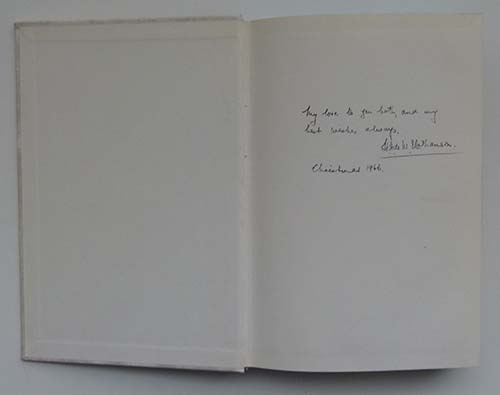 My love to you both, and my
best wishes always.
Christmas 1966.